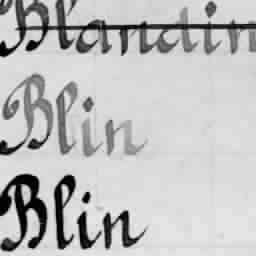 Blandin
Blin
Blin